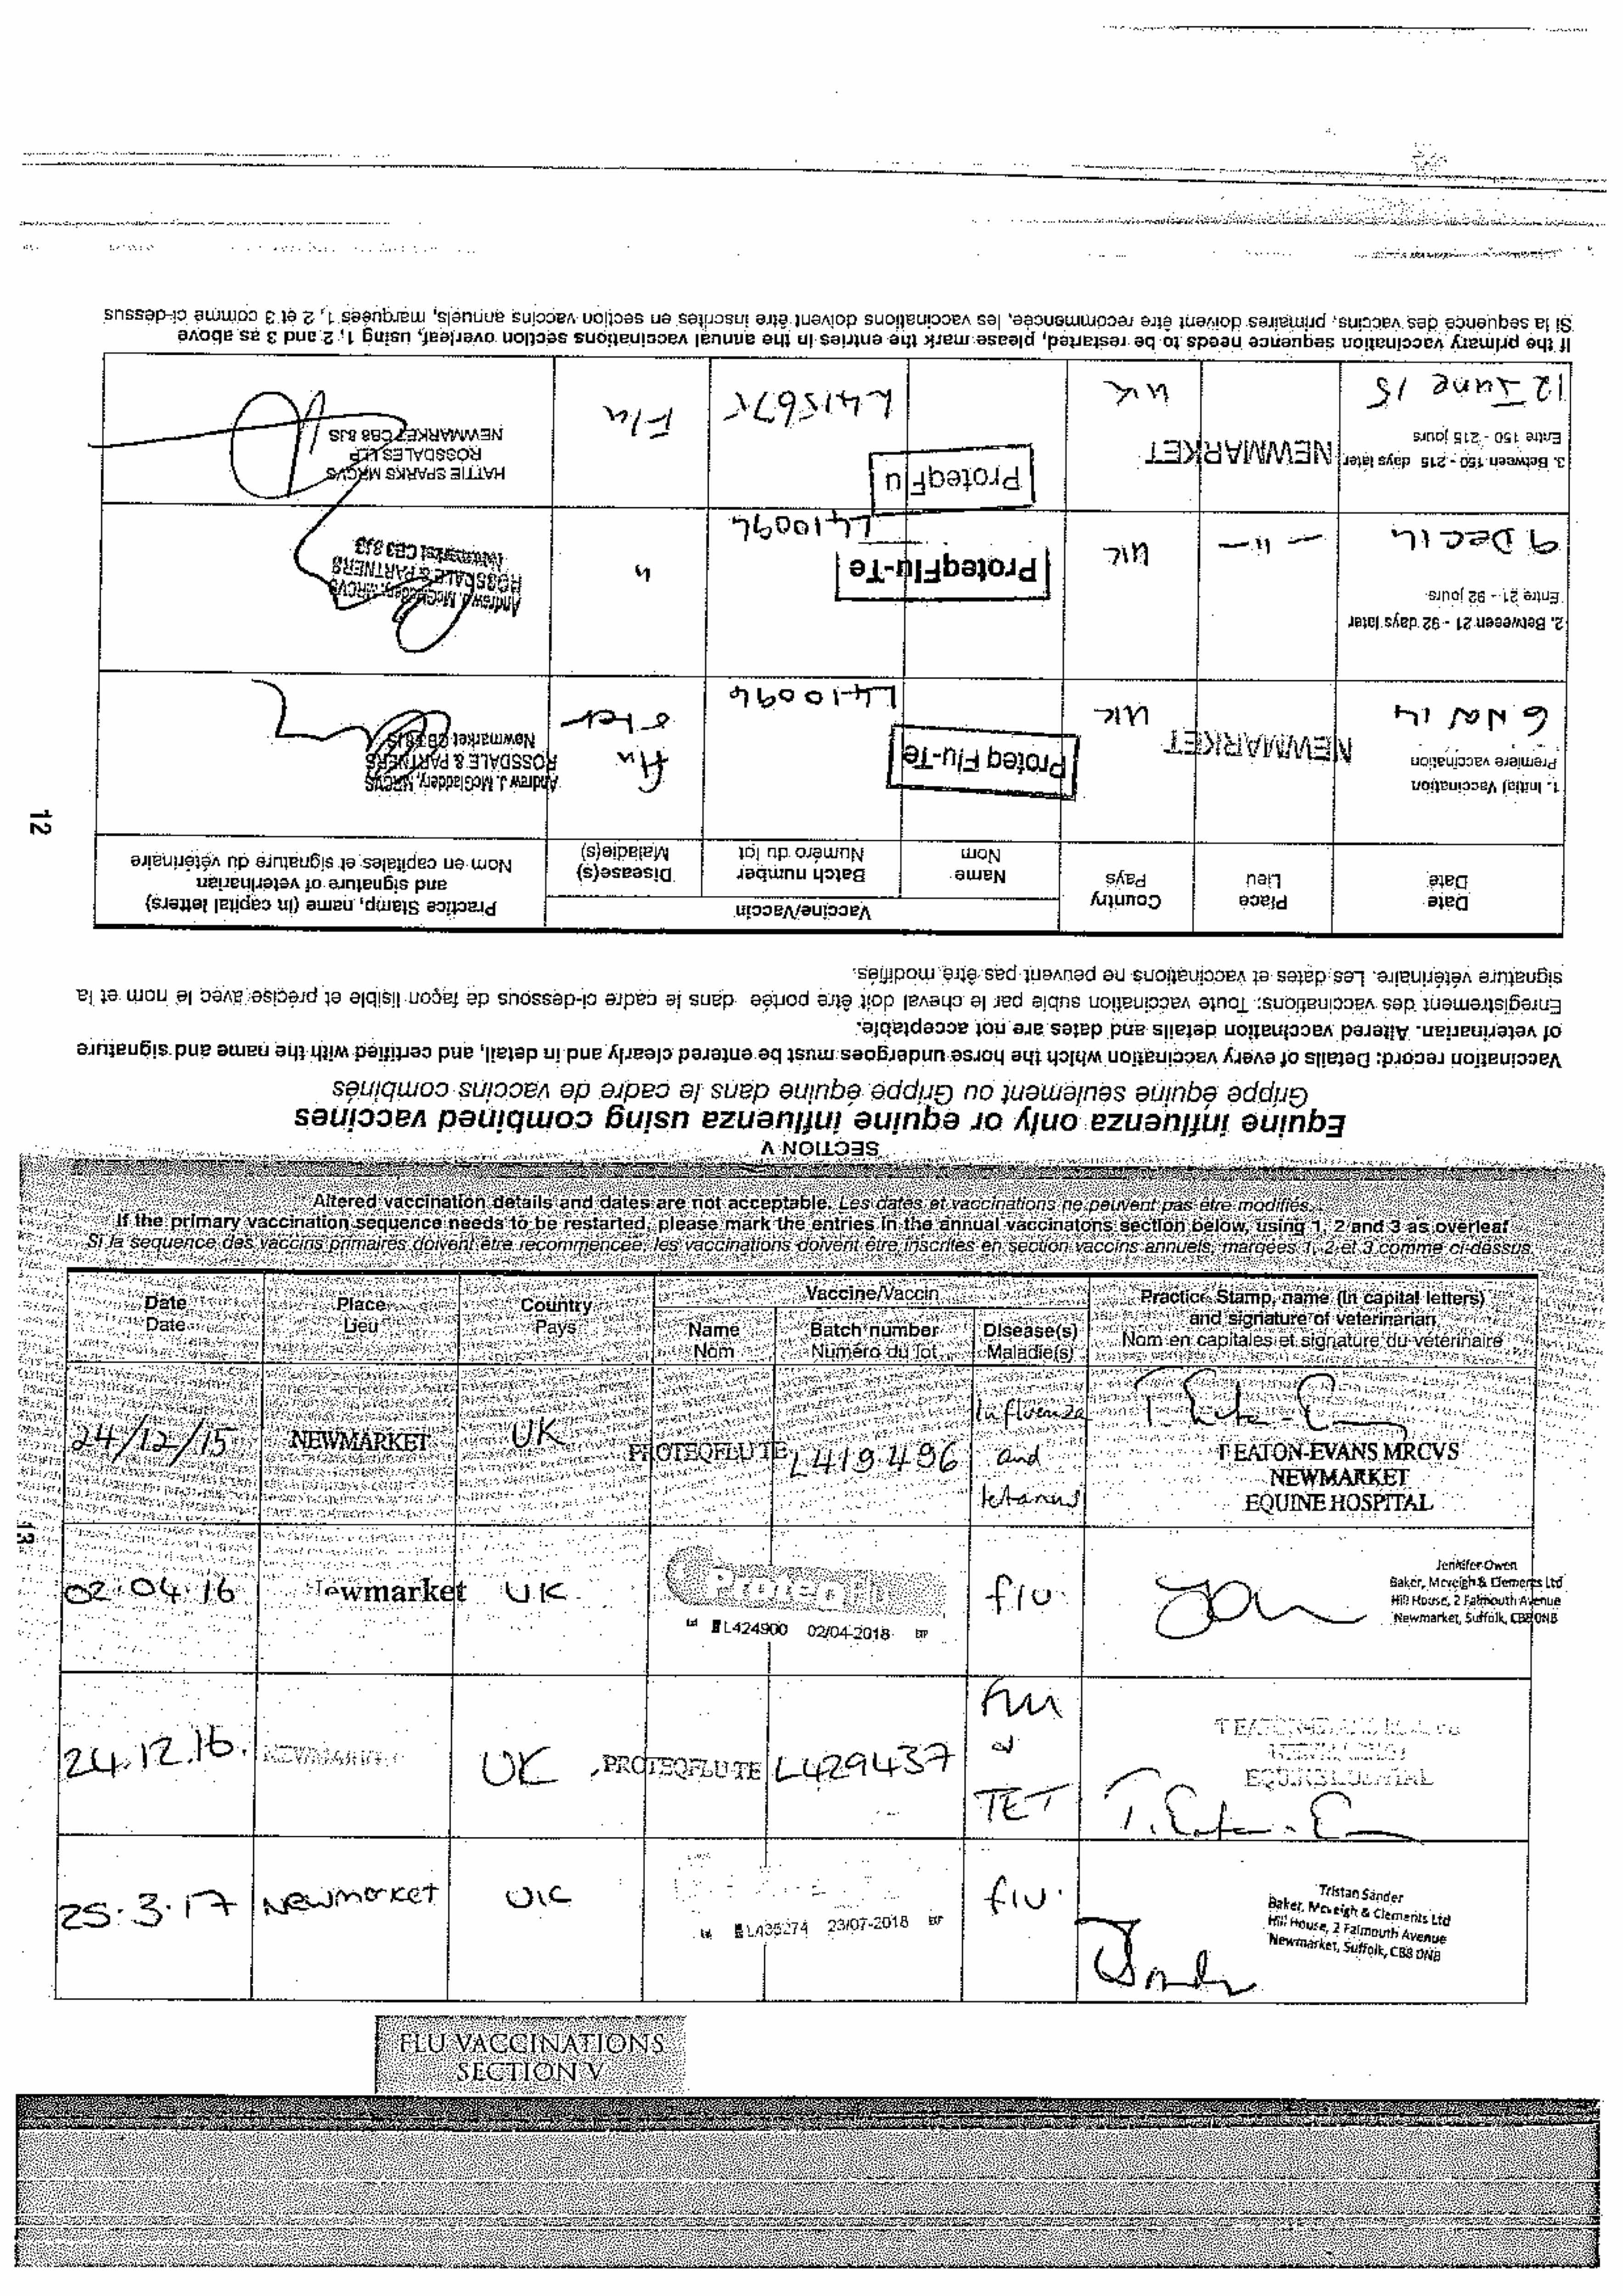 12
SECTION V
Equine influenza only or equine influenza using combined vaccines
Grippe équine seulement ou Grippe équine dans le cadre de vaccins combinés
Vaccination record: Details of every vaccination which the horse undergoes must be entered clearly and in detail, and certified with the name and signature
of veterinarian. Altered vaccination details and dates are not acceptable.
Enregistrement des vaccinations: Toute vaccination subie par le cheval doit être portée dans le cadre ci-dessous de façon lisible et précise avec le nom et la
signature vétérinaire. Les dates et vaccinations ne peuvent pas être modifiés.
Date
Date
Place
Lieu
Country
Pays
Vaccine/Vaccin
Name
Nom
Batch number
Numéro du lot
Disease(s)
Maladie(s)
Practice Stamp, name (in capital letters)
and signature of veterinarian
Nom en capitales et signature du vétérinaire
1. Initial Vaccination
Première vaccination
6 Nov 14
NEWMARKET
UK
Proteq Flu-Te
L410094
flu
Andrew J. McGladdery, MRCVS
ROSSDALE & PARTNERS
Newmarket CB8 8JS
2. Betweeen 21 - 92 days later
Entre 21 - 92 jours
9 DEC 14
— 11 —
UK
ProteqFlu-Te
L410094
"
Andrew J. McGladdery, MRCVS
ROSSDALE & PARTNERS
Newmarket CB8 8JS
3. Between 150 - 215 days later
Entre 150 - 215 jours
12 June 15
NEWMARKET
UK
ProteqFlu
L415675
Flu
HATTIE SPARKS MRCVS
ROSSDALES LLP
NEWMARKET CB8 8JS
If the primary vaccination sequence needs to be restarted, please mark the entries in the annual vaccinations section overleaf, using 1, 2 and 3 as above
Si la sequence des vaccins, primaires doivent être recommencée, les vaccinations doivent être inscrites en section vaccins annuels, marquées 1, 2 et 3 comme ci-dessus
13
Altered vaccination details and dates are not acceptable. Les dates et vaccinations ne peuvent pas être modifiés.
If the primary vaccination sequence needs to be restarted, please mark the entries in the annual vaccinatons section below, using 1, 2 and 3 as overleaf
Si la sequence des vaccins primaires doivent être recommencée, les vaccinations doivent être inscrites en section vaccins annuels, margées 1, 2 et 3 comme ci-dessus.
Date
Date
Place
Lieu
Country
Pays
Vaccine/Vaccin
Name
Nom
Batch number
Numéro du lot
Disease(s)
Maladie(s)
Practice Stamp, name (In capital letters)
and signature of veterinarian
Nom en capitales et signature du vétérinaire
24/12/15
NEWMARKET
UK
PROTEQFLU TE
L419496
Influenza
and
tetanus
T EATON-EVANS MRCVS
NEWMARKET
EQUINE HOSPITAL
02.04.16
Newmarket
UK
ProteqFlu
Lot L424900 02/04-2018 EXP
flu
Jennifer Owen
Baker, Mcveigh & Clements Ltd
Hill House, 2 Falmouth Avenue
Newmarket, Suffolk, CB8 0NB
24.12.16.
NEWMARKET
UK
PROTEQFLU TE
L429437
Flu
TET
T EATON-EVANS MRCVS
NEWMARKET
EQUINE HOSPITAL
25.3.17
Newmarket
UK
Lot L435274 23/07-2018 EXP
flu
Tristan Sander
Baker, Mcveigh & Clements Ltd
Hill House, 2 Falmouth Avenue
Newmarket, Suffolk, CB8 0NB
FLU VACCINATIONS
SECTION V